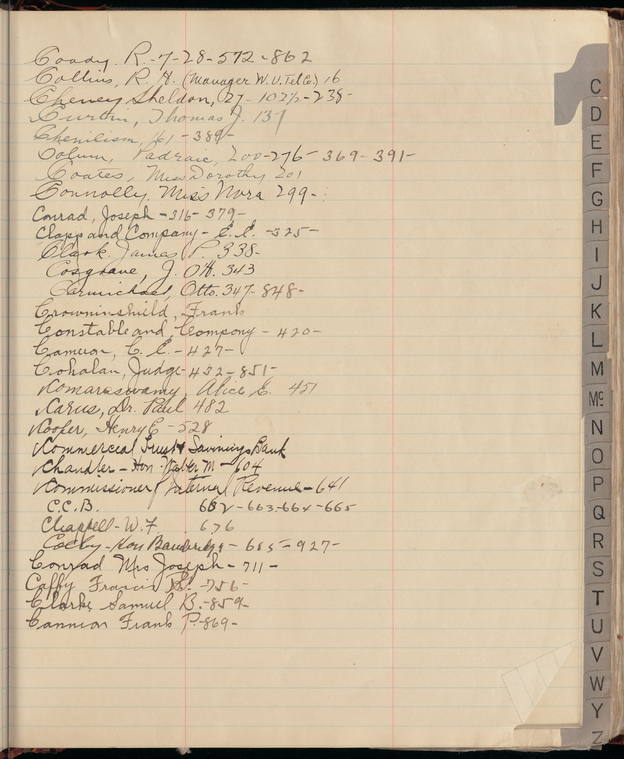 Coady. R.-7-28-572-862
Collins, R. H. (Manager W.U.Tel.Co.) 16
Cheney Sheldon, 27-102½-238-
Curtin, Thomas J. 137
Chenilism, 161-389-
Colum, Padraic, 200-276-369-391-
Coates, Miss Dorothy 201
Connolly, Miss Nora 299-
Conrad, Joseph-316-379-
Clapp and Company-E.E.-325-
Clark. James P. 338-
Cosgrave, J. O'H. 343
Carmichael, Otto. 347-848-
Crowninshield, Frank
Constable and Company-420-
Cameron, C. E.-427-
Cohalan, Judge-432-851-
Komaraswamy, Alice E. 451
Karus, Dr. Paul 482
Kooper, Henry E-528
Kommercial Trust & Savings Bank
Khandler-Hon. Walter M-604
Kommissioner Internal Revenue-641
C.C.B. 662-663-664-665
Chappell-W.F. 676
Colby-Hon Bainbridge-685-927-
Conrad Mrs Joseph-711-
Caffy Francis G.-756-
Clarke Samuel B.-859-
Cannion Frank P-869-
C
D
E
F
G
H
I
J
K
L
M
Mc
N
O
P
Q
R
S
T
U
V
W
Y
Z